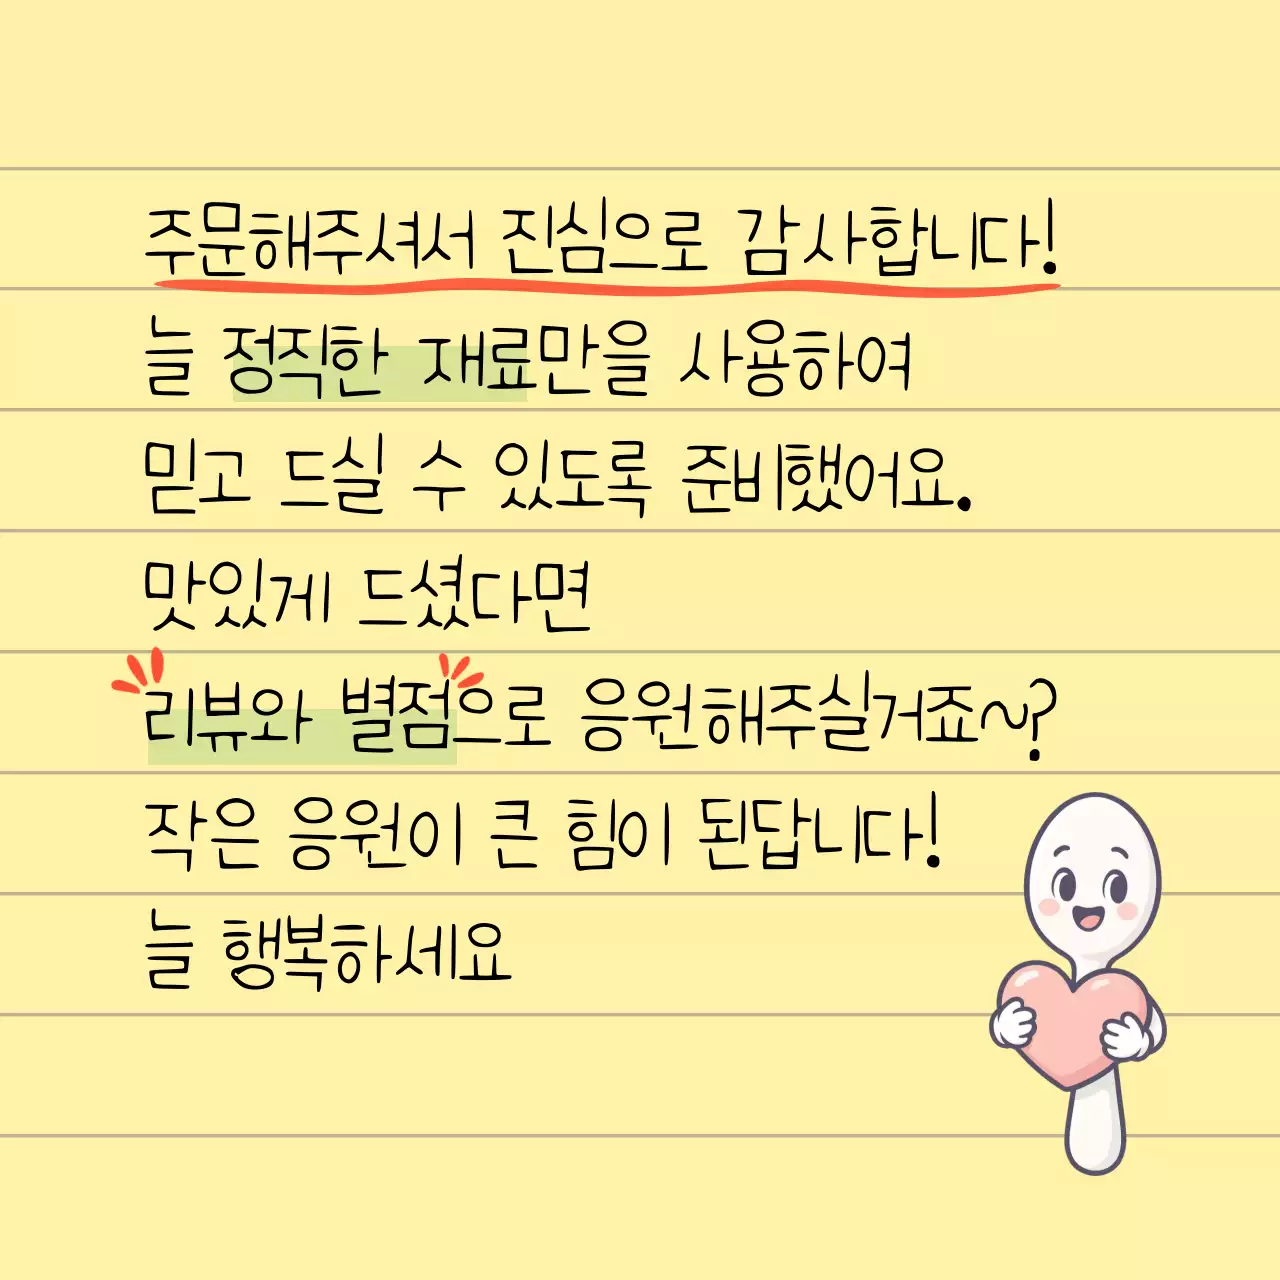 주문해주셔서 진심으로 감사합니다!
늘 정직한 재료만을 사용하여
믿고 드실 수 있도록 준비했어요.
맛있게 드셨다면
리뷰와 별점으로 응원해주실거죠~?
작은 응원이 큰 힘이 된답니다!
늘 행복하세요